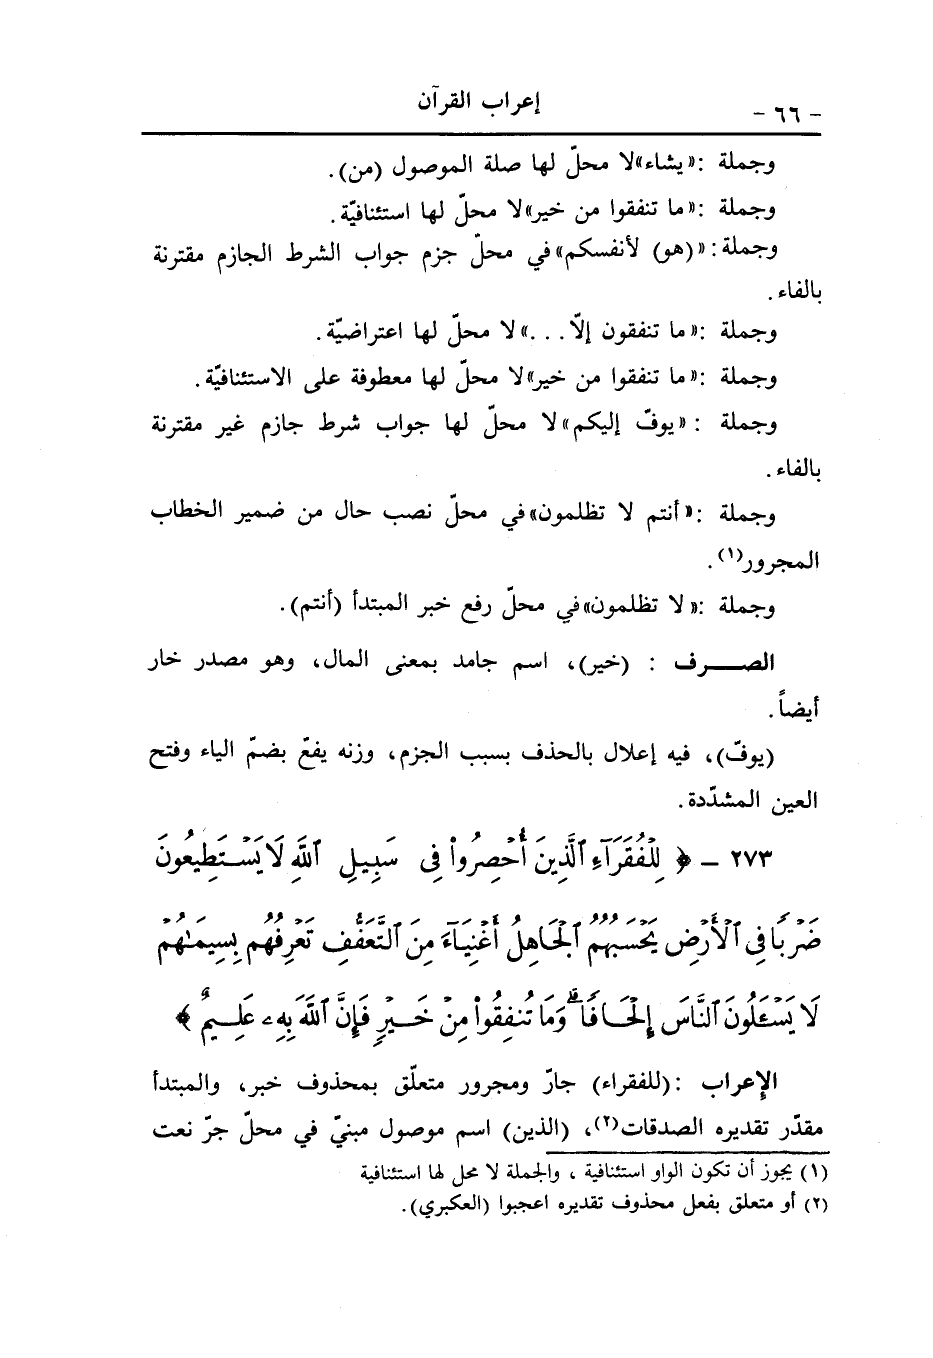 إعراب القرآن
- ٦٦ -
وجملة :«يشاء»لا محلّ لها صلة الموصول (من).
وجملة :«ما تنفقوا من خير»لا محلّ لها استئنافيّة.
وجملة :«(هو) لأنفسكم»في محلّ جزم جواب الشرط الجازم مقترنة
بالفاء.
وجملة :«ما تنفقون إلّا...»لا محلّ لها اعتراضيّة.
وجملة :«ما تنفقوا من خير»لا محلّ لها معطوفة على الاستئنافيّة.
وجملة :«يوفّ إليكم»لا محلّ لها جواب شرط جازم غير مقترنة
بالفاء.
وجملة :«أنتم لا تظلمون»في محلّ نصب حال من ضمير الخطاب
المجرور(١).
وجملة :«لا تظلمون»في محلّ رفع خبر المبتدأ (أنتم).
الصـــرف : (خير)، اسم جامد بمعنى المال، وهو مصدر خار
أيضاً.
(يوفّ)، فيه إعلال بالحذف بسبب الجزم، وزنه يفعّ بضمّ الياء وفتح
العين المشدّدة.
٢٧٣ - ﴿ لِلْفُقَرَآءِ ٱلَّذِينَ أُحْصِرُوا۟ فِى سَبِيلِ ٱللَّهِ لَا يَسْتَطِيعُونَ
ضَرْبًا فِى ٱلْأَرْضِ يَحْسَبُهُمُ ٱلْجَاهِلُ أَغْنِيَآءَ مِنَ ٱلتَّعَفُّفِ تَعْرِفُهُم بِسِيمَٰهُمْ
لَا يَسْـَٔلُونَ ٱلنَّاسَ إِلْحَافًا ۗ وَمَا تُنفِقُوا۟ مِنْ خَيْرٍ فَإِنَّ ٱللَّهَ بِهِۦ عَلِيمٌ ﴾
الإعراب :(للفقراء) جارّ ومجرور متعلّق بمحذوف خبر، والمبتدأ
مقدّر تقديره الصدقات(٢)، (الذين) اسم موصول مبنيّ في محلّ جرّ نعت
(١) يجوز أن تكون الواو استئنافية ، والجملة لا محل لها استئنافية
(٢) أو متعلق بفعل محذوف تقديره اعجبوا (العكبري).